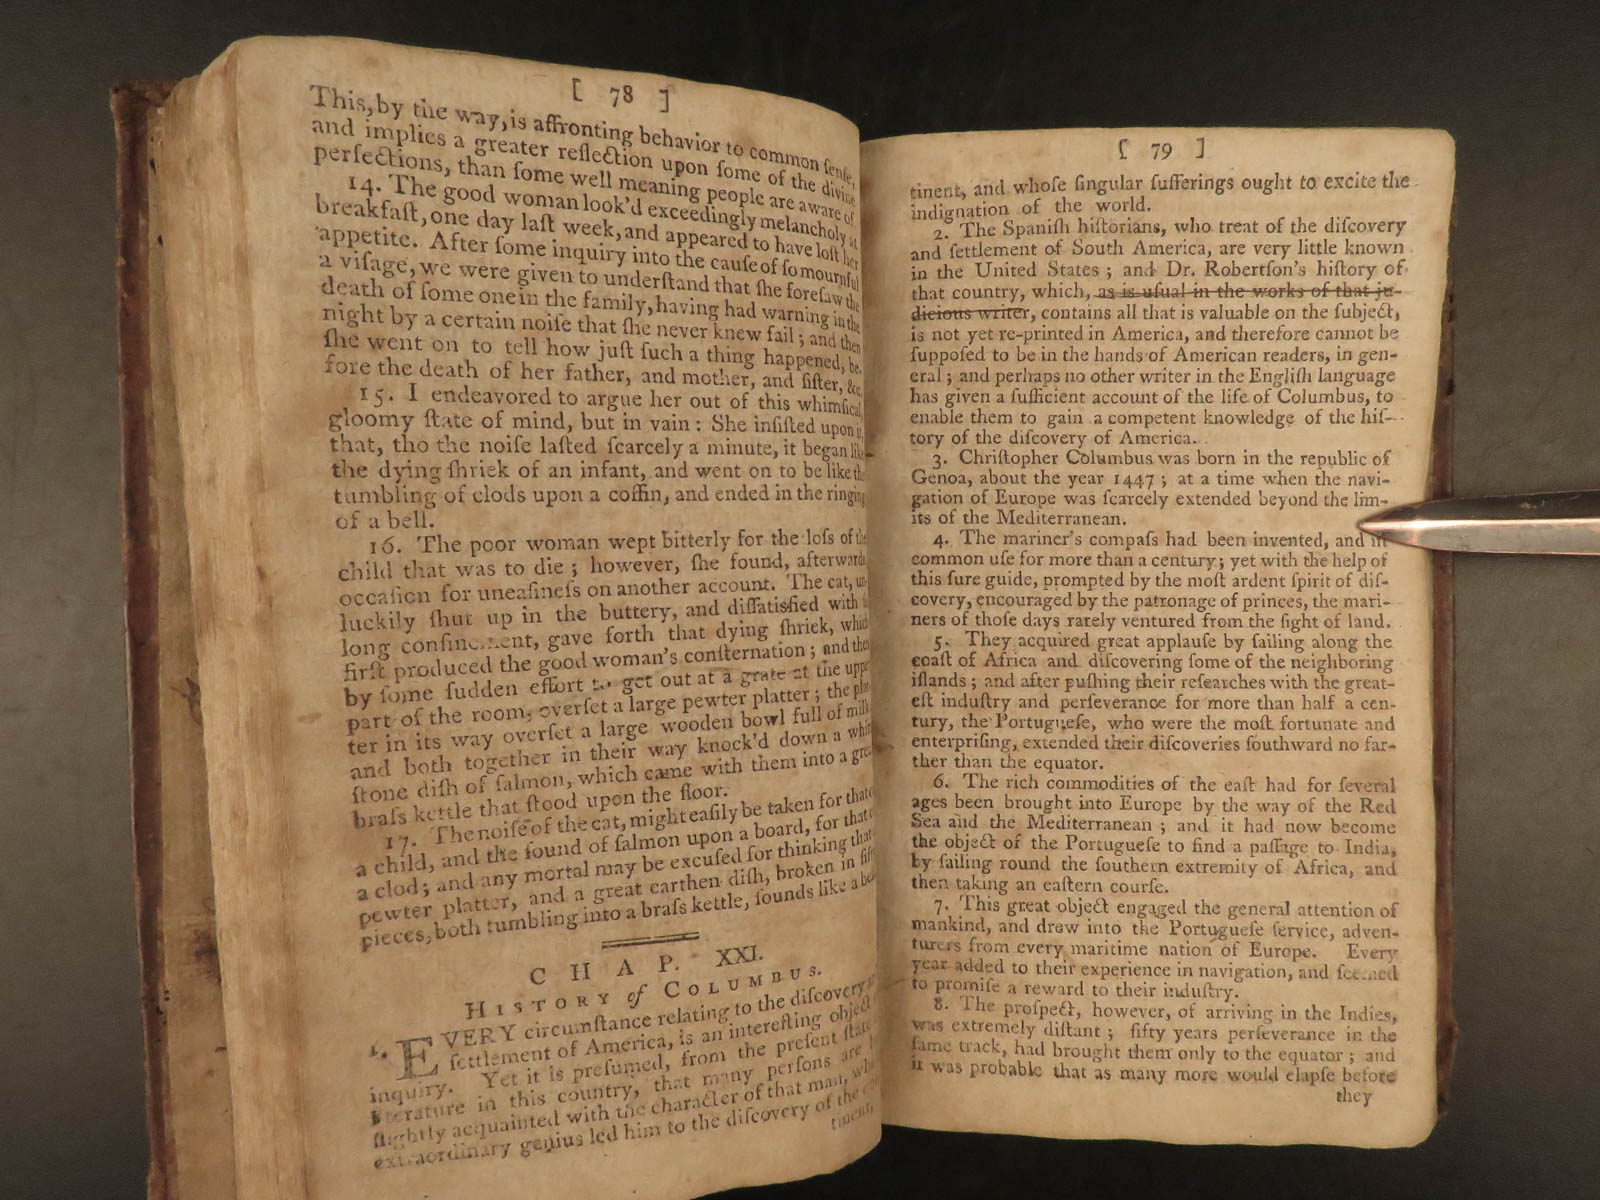 [ 78 ]
This, by the way, is affronting behavior to common ſenſe,
and implies a greater reflection upon ſome of the divine
perfections, than ſome well meaning people are aware of.
14. The good woman look'd exceedingly melancholy at
breakfaſt, one day laſt week, and appeared to have loſt her
appetite. After ſome inquiry into the cauſe of ſo mournful
a viſage, we were given to underſtand that ſhe foreſaw the
death of ſome one in the family, having had warning in the
night by a certain noiſe that ſhe never knew fail; and then
ſhe went on to tell how juſt ſuch a thing happened, be-
fore the death of her father, and mother, and ſiſter, &c.
15. I endeavored to argue her out of this whimſical,
gloomy ſtate of mind, but in vain: She inſiſted upon it,
that, tho the noiſe laſted ſcarcely a minute, it began like
the dying ſhriek of an infant, and went on to be like the
tumbling of clods upon a coffin, and ended in the ringing
of a bell.
16. The poor woman wept bitterly for the loſs of the
child that was to die; however, ſhe found, afterwards,
occaſion for uneaſineſs on another account. The cat, un-
luckily ſhut up in the buttery, and diſſatisfied with
long confinement, gave forth that dying ſhriek, which
firſt produced the good woman's conſternation; and then
by ſome ſudden effort to get out at a grate at the upper
part of the room, overſet a large pewter platter; the plat-
ter in its way overſet a large wooden bowl full of milk
and both together in their way knock'd down a white
ſtone diſh of ſalmon, which came with them into a great
braſs kettle that ſtood upon the floor.
17. The noiſe of the cat, might eaſily be taken for that
a child, and the ſound of ſalmon upon a board, for that
a clod; and any mortal may be excuſed for thinking that
pewter platter, and a great earthen diſh, broken in fifty
pieces, both tumbling into a braſs kettle, ſounds like a bell
C H A P. XXI.
HISTORY of COLUMBUS.
1. EVERY circumſtance relating to the diſcovery
ſettlement of America, is an intereſting object
inquiry. Yet it is preſumed, from the preſent ſtate
literature in this country, that many perſons are
ſlightly acquainted with the character of that man, whoſe
extraordinary genius led him to the diſcovery of the con-
tinent,
[ 79 ]
tinent, and whoſe ſingular ſufferings ought to excite the
indignation of the world.
2. The Spaniſh hiſtorians, who treat of the diſcovery
and ſettlement of South America, are very little known
in the United States; and Dr. Robertſon's hiſtory of
that country, which, as is uſual in the works of that ju-
dicious writer, contains all that is valuable on the ſubject,
is not yet re-printed in America, and therefore cannot be
ſuppoſed to be in the hands of American readers, in gen-
eral; and perhaps no other writer in the Engliſh language
has given a ſufficient account of the life of Columbus, to
enable them to gain a competent knowledge of the hiſ-
tory of the diſcovery of America.
3. Chriſtopher Columbus was born in the republic of
Genoa, about the year 1447; at a time when the navi-
gation of Europe was ſcarcely extended beyond the lim-
its of the Mediterranean.
4. The mariner's compaſs had been invented, and in
common uſe for more than a century; yet with the help of
this ſure guide, prompted by the moſt ardent ſpirit of diſ-
covery, encouraged by the patronage of princes, the mari-
ners of thoſe days rarely ventured from the ſight of land.
5. They acquired great applauſe by ſailing along the
coaſt of Africa and diſcovering ſome of the neighboring
iſlands; and after puſhing their reſearches with the great-
eſt induſtry and perſeverance for more than half a cen-
tury, the Portugueſe, who were the moſt fortunate and
enterpriſing, extended their diſcoveries ſouthward no far-
ther than the equator.
6. The rich commodities of the eaſt had for ſeveral
ages been brought into Europe by the way of the Red
Sea and the Mediterranean; and it had now become
the object of the Portugueſe to find a paſſage to India,
by ſailing round the ſouthern extremity of Africa, and
then taking an eaſtern courſe.
7. This great object engaged the general attention of
mankind, and drew into the Portugueſe ſervice, adven-
turers from every maritime nation of Europe. Every
year added to their experience in navigation, and ſeemed
to promiſe a reward to their induſtry.
8. The proſpect, however, of arriving in the Indies,
was extremely diſtant; fifty years perſeverance in the
ſame track, had brought them only to the equator; and
it was probable that as many more would elapſe before
they